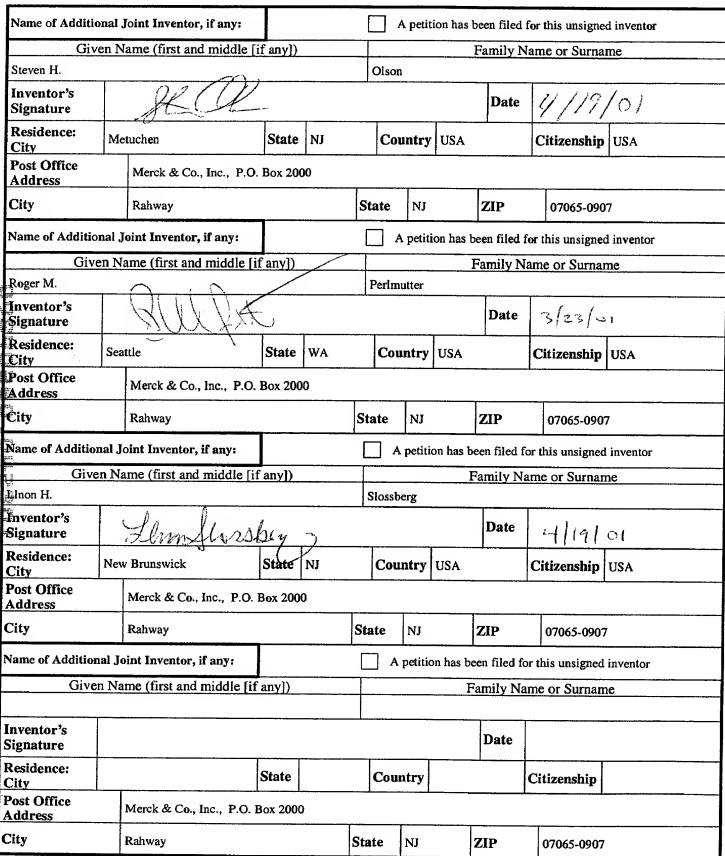 Name of Additional Joint Inventor, if any: A petition has been filed for this unsigned inventor
Given Name (first and middle [if any]) Family Name or Surname
Steven H. Olson
Inventor's Signature Date 4/19/01
Residence: City Metuchen State NJ Country USA Citizenship USA
Post Office Address Merck & Co., Inc., P.O. Box 2000
City Rahway State NJ ZIP 07065-0907
Name of Additional Joint Inventor, if any: A petition has been filed for this unsigned inventor
Given Name (first and middle [if any]) Family Name or Surname
Roger M. Perlmutter
Inventor's Signature Date 3/23/01
Residence: City Seattle State WA Country USA Citizenship USA
Post Office Address Merck & Co., Inc., P.O. Box 2000
City Rahway State NJ ZIP 07065-0907
Name of Additional Joint Inventor, if any: A petition has been filed for this unsigned inventor
Given Name (first and middle [if any]) Family Name or Surname
H. Slossberg
Inventor's Signature Date 4/19/01
Residence: City New Brunswick State NJ Country USA Citizenship USA
Post Office Address Merck & Co., Inc., P.O. Box 2000
City Rahway State NJ ZIP 07065-0907
Name of Additional Joint Inventor, if any: A petition has been filed for this unsigned inventor
Given Name (first and middle [if any]) Family Name or Surname
Inventor's Signature Date
Residence: City State Country Citizenship
Post Office Address Merck & Co., Inc., P.O. Box 2000
City Rahway State NJ ZIP 07065-0907